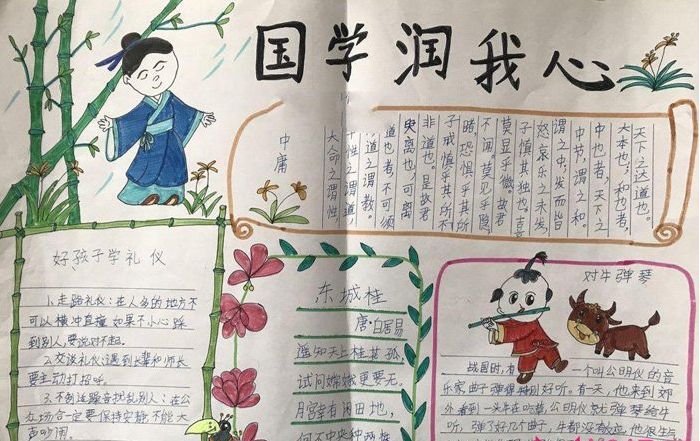 国学润我心
中庸
大命之谓性,
性之谓道,
道之谓教。
道也者不可须
臾离也,可离
非道也。是故君
子戒慎乎其所不
睹,恐惧乎其所
不闻。莫见乎隐
莫显乎微。故君
子慎其独也。喜
怒哀乐之未发
谓之中,发而皆
中节,谓之和。
中也者,天下之
大本也;和也者,
天下之达道也。
好孩子学礼仪
1.走路礼仪:在人多的地方不
可以横冲直撞如果不小心踩
到别人,要说对不起。
2.交谈礼仪:遇到长辈和师长
要主动打招呼。
3.不制造噪音扰乱别人:在公
众场合一定要保持安静不能大
声吵闹。
东城桂
唐·白居易
遥知天上桂花孤,
试问嫦娥更要无。
月宫幸有闲田地,
何不中央种两株
对牛弹琴
战国时,有一个叫公明仪的音
乐家曲子弹得特别好听。有一天,他来到郊
外看到一头牛在吃草,公明仪就弹琴给牛
听,弹了好几个曲子,牛都没有效应,他很生气